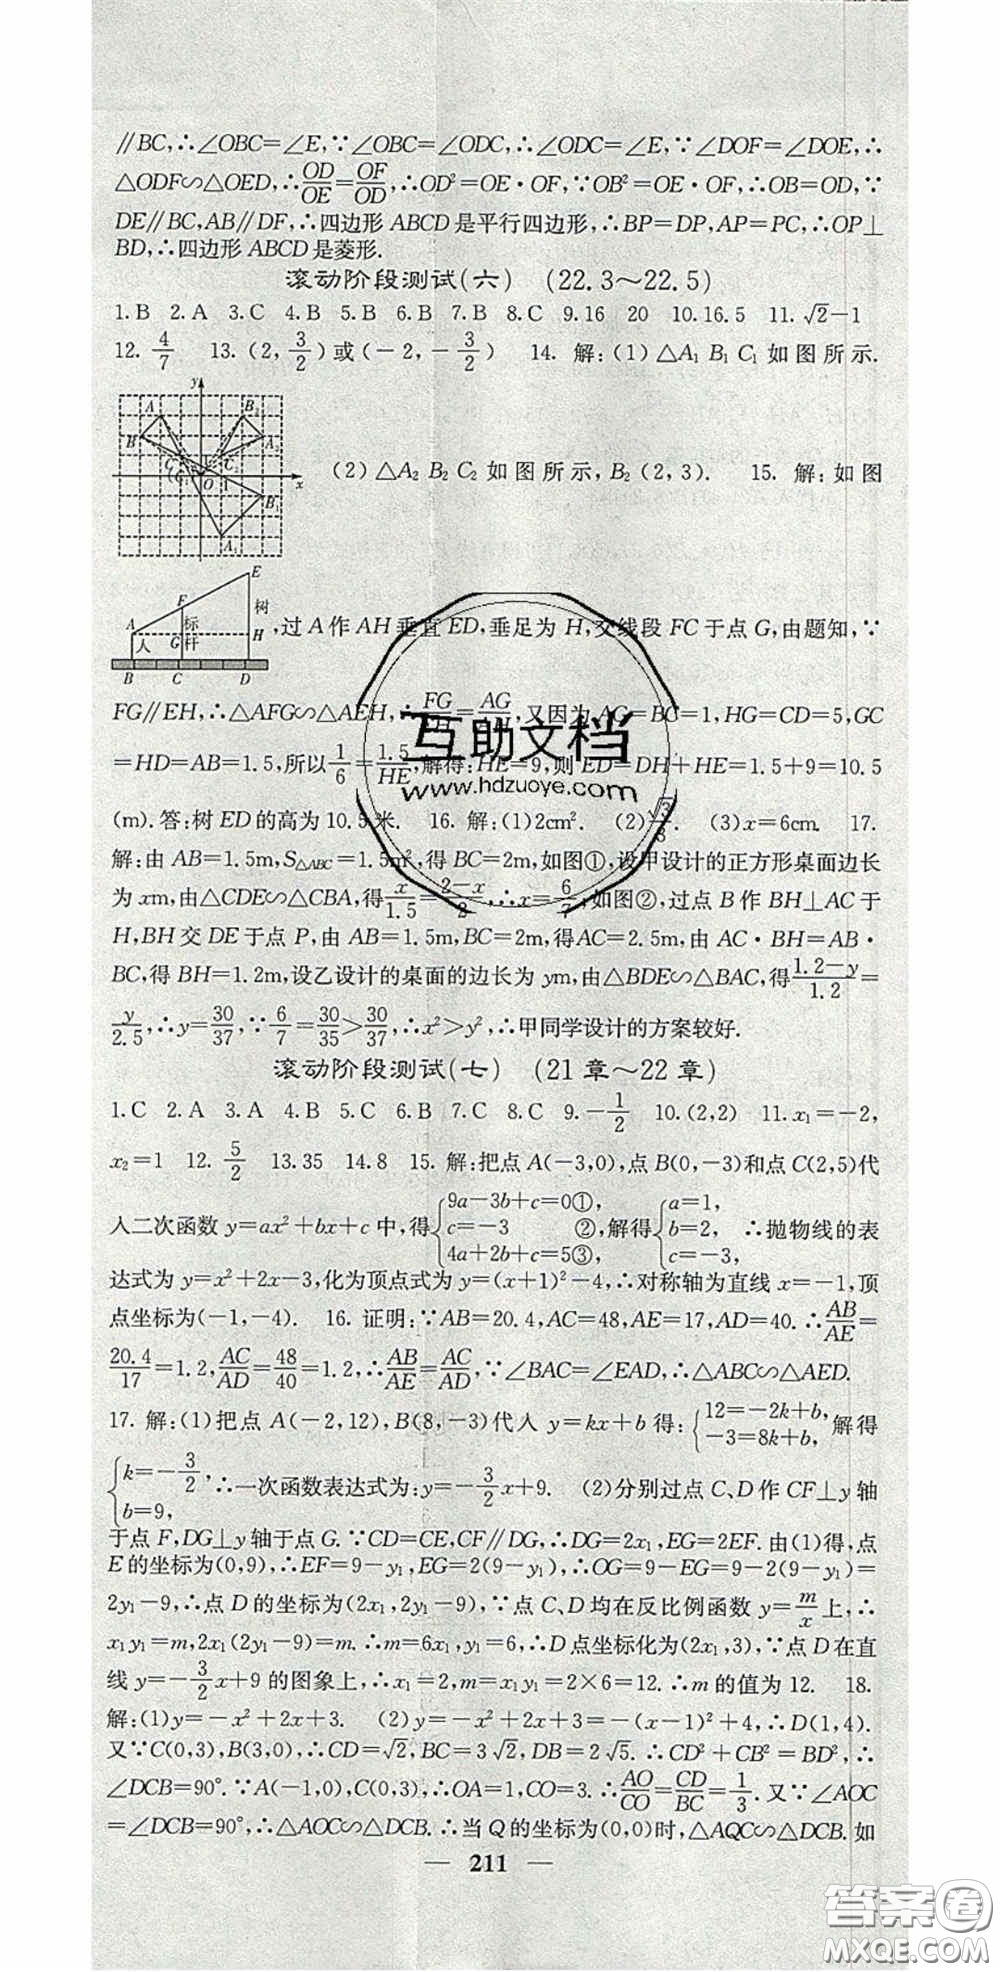 ∥BC,∴∠OBC=∠E,∵∠OBC=∠ODC,∴∠ODC=∠E,∵∠DOF=∠DOE,∴
△ODF∽△OED,∴OD/OE=OF/OD,∴OD²=OE·OF,∵OB²=OE·OF,∴OB=OD,∵
DE∥BC,AB∥DF,∴四边形 ABCD 是平行四边形,∴BP=DP,AP=PC,∴OP⊥
BD,∴四边形 ABCD 是菱形.
滚动阶段测试(六) (22.3~22.5)
1.B 2.A 3.C 4.B 5.B 6.B 7.B 8.C 9.16 20 10.16.5 11.√2-1
12. 4/7 13.(2, 3/2)或(-2,-3/2) 14. 解:(1)△A₁B₁C₁ 如图所示.
y A B₂ B A₂ C C₂ O 1 x B₁ A₁
(2)△A₂B₂C₂ 如图所示,B₂(2,3). 15. 解:如图
E F 树 A 标 人 G 杆 H B C D
,过 A 作 AH 垂直 ED,垂足为 H,交线段 FC 于点 G,由题知,∵
FG∥EH,∴△AFG∽△AEH,∴FG/=AG/,又因为 AG=BC=1,HG=CD=5,GC
=HD=AB=1.5,所以1/6=1.5/HE,解得:HE=9,则 ED=DH+HE=1.5+9=10.5
(m).答:树 ED 的高为 10.5 米. 16. 解:(1)2cm². (2)√3/3. (3)x=6cm. 17.
解:由 AB=1.5m,S△ABC=1.5m²,得 BC=2m,如图①,设甲设计的正方形桌面边长
为 xm,由△CDE∽△CBA,得x/1.5=2-x/2,∴x=6/7,如图②,过点 B 作 BH⊥AC 于
H,BH 交 DE 于点 P,由 AB=1.5m,BC=2m,得AC=2.5m,由 AC·BH=AB·
BC,得 BH=1.2m,设乙设计的桌面的边长为 ym,由△BDE∽△BAC,得1.2-y/1.2=
y/2.5,∴y=30/37,∵6/7=30/35>30/37,∴x²>y²,∴甲同学设计的方案较好.
滚动阶段测试(七) (21章~22章)
1.C 2.A 3.A 4.B 5.B 6.B 7.C 8.C 9.-1/2 10.(2,2) 11.x₁=-2,
x₂=1 12. 5/2 13.35 14.8 15. 解:把点A(-3,0),点B(0,-3)和点C(2,5)代
入二次函数 y=ax²+bx+c 中,得{9a-3b+c=0①, c=-3 ②, 4a+2b+c=5③, 解得{a=1, b=2, c=-3, ∴抛物线的表
达式为 y=x²+2x-3,化为顶点式为 y=(x+1)²-4,∴对称轴为直线 x=-1,顶
点坐标为(-1,-4). 16. 证明:∵AB=20.4,AC=48,AE=17,AD=40.∴AB/AE=
20.4/17=1.2,AC/AD=48/40=1.2,∴AB/AE=AC/AD,∵∠BAC=∠EAD,∴△ABC∽△AED.
17. 解:(1)把点 A(-2,12),B(8,-3)代入 y=kx+b 得:{12=-2k+b, -3=8k+b, 解得
{k=-3/2, b=9, ∴一次函数表达式为:y=-3/2x+9. (2)分别过点 C、D 作 CF⊥y 轴
于点 F,DG⊥y 轴于点 G.∵CD=CE,CF∥DG,∴DG=2x₁,EG=2EF. 由(1)得,点
E 的坐标为(0,9),∴EF=9-y₁,EG=2(9-y₁),∴OG=9-EG=9-2(9-y₁)=
2y₁-9,∴点 D 的坐标为(2x₁,2y₁-9),∵点 C、D 均在反比例函数 y=m/x上,∴
x₁y₁=m,2x₁(2y₁-9)=m.∴m=6x₁,y₁=6,∴D 点坐标化为(2x₁,3),∵点 D 在直
线 y=-3/2x+9 的图象上,∴x₁=2,m=x₁y₁=2×6=12.∴m 的值为 12. 18.
解:(1)y=-x²+2x+3. (2)y=-x²+2x+3=-(x-1)²+4,∴D(1,4).
又∵C(0,3),B(3,0),∴CD=√2,BC=3√2,DB=2√5.∴CD²+CB²=BD²,∴
∠DCB=90°.∵A(-1,0),C(0,3),∴OA=1,CO=3.∴AO/CO=CD/BC=1/3.又∵∠AOC
=∠DCB=90°,∴△AOC∽△DCB.∴当 Q 的坐标为(0,0)时,△AQC∽△DCB.如
— 211 —
互助文档
www.hdzuoye.com
答案圈
MXQE.COM